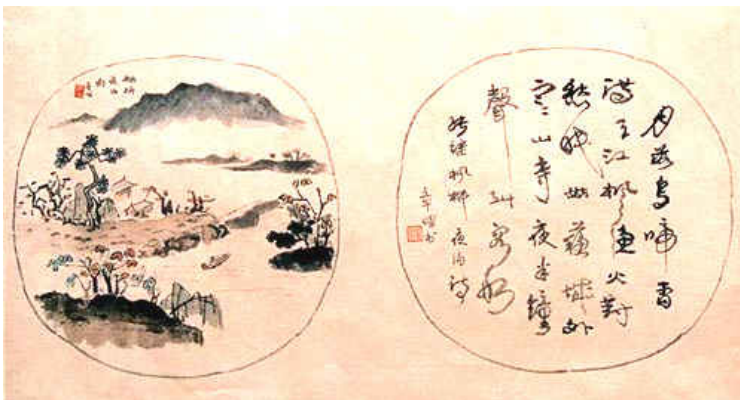 月落烏啼霜
滿天江楓漁火對
愁眠姑蘇城外
寒山寺夜半鐘
聲到客船
張繼楓橋夜泊詩
書
楓橋
夜泊